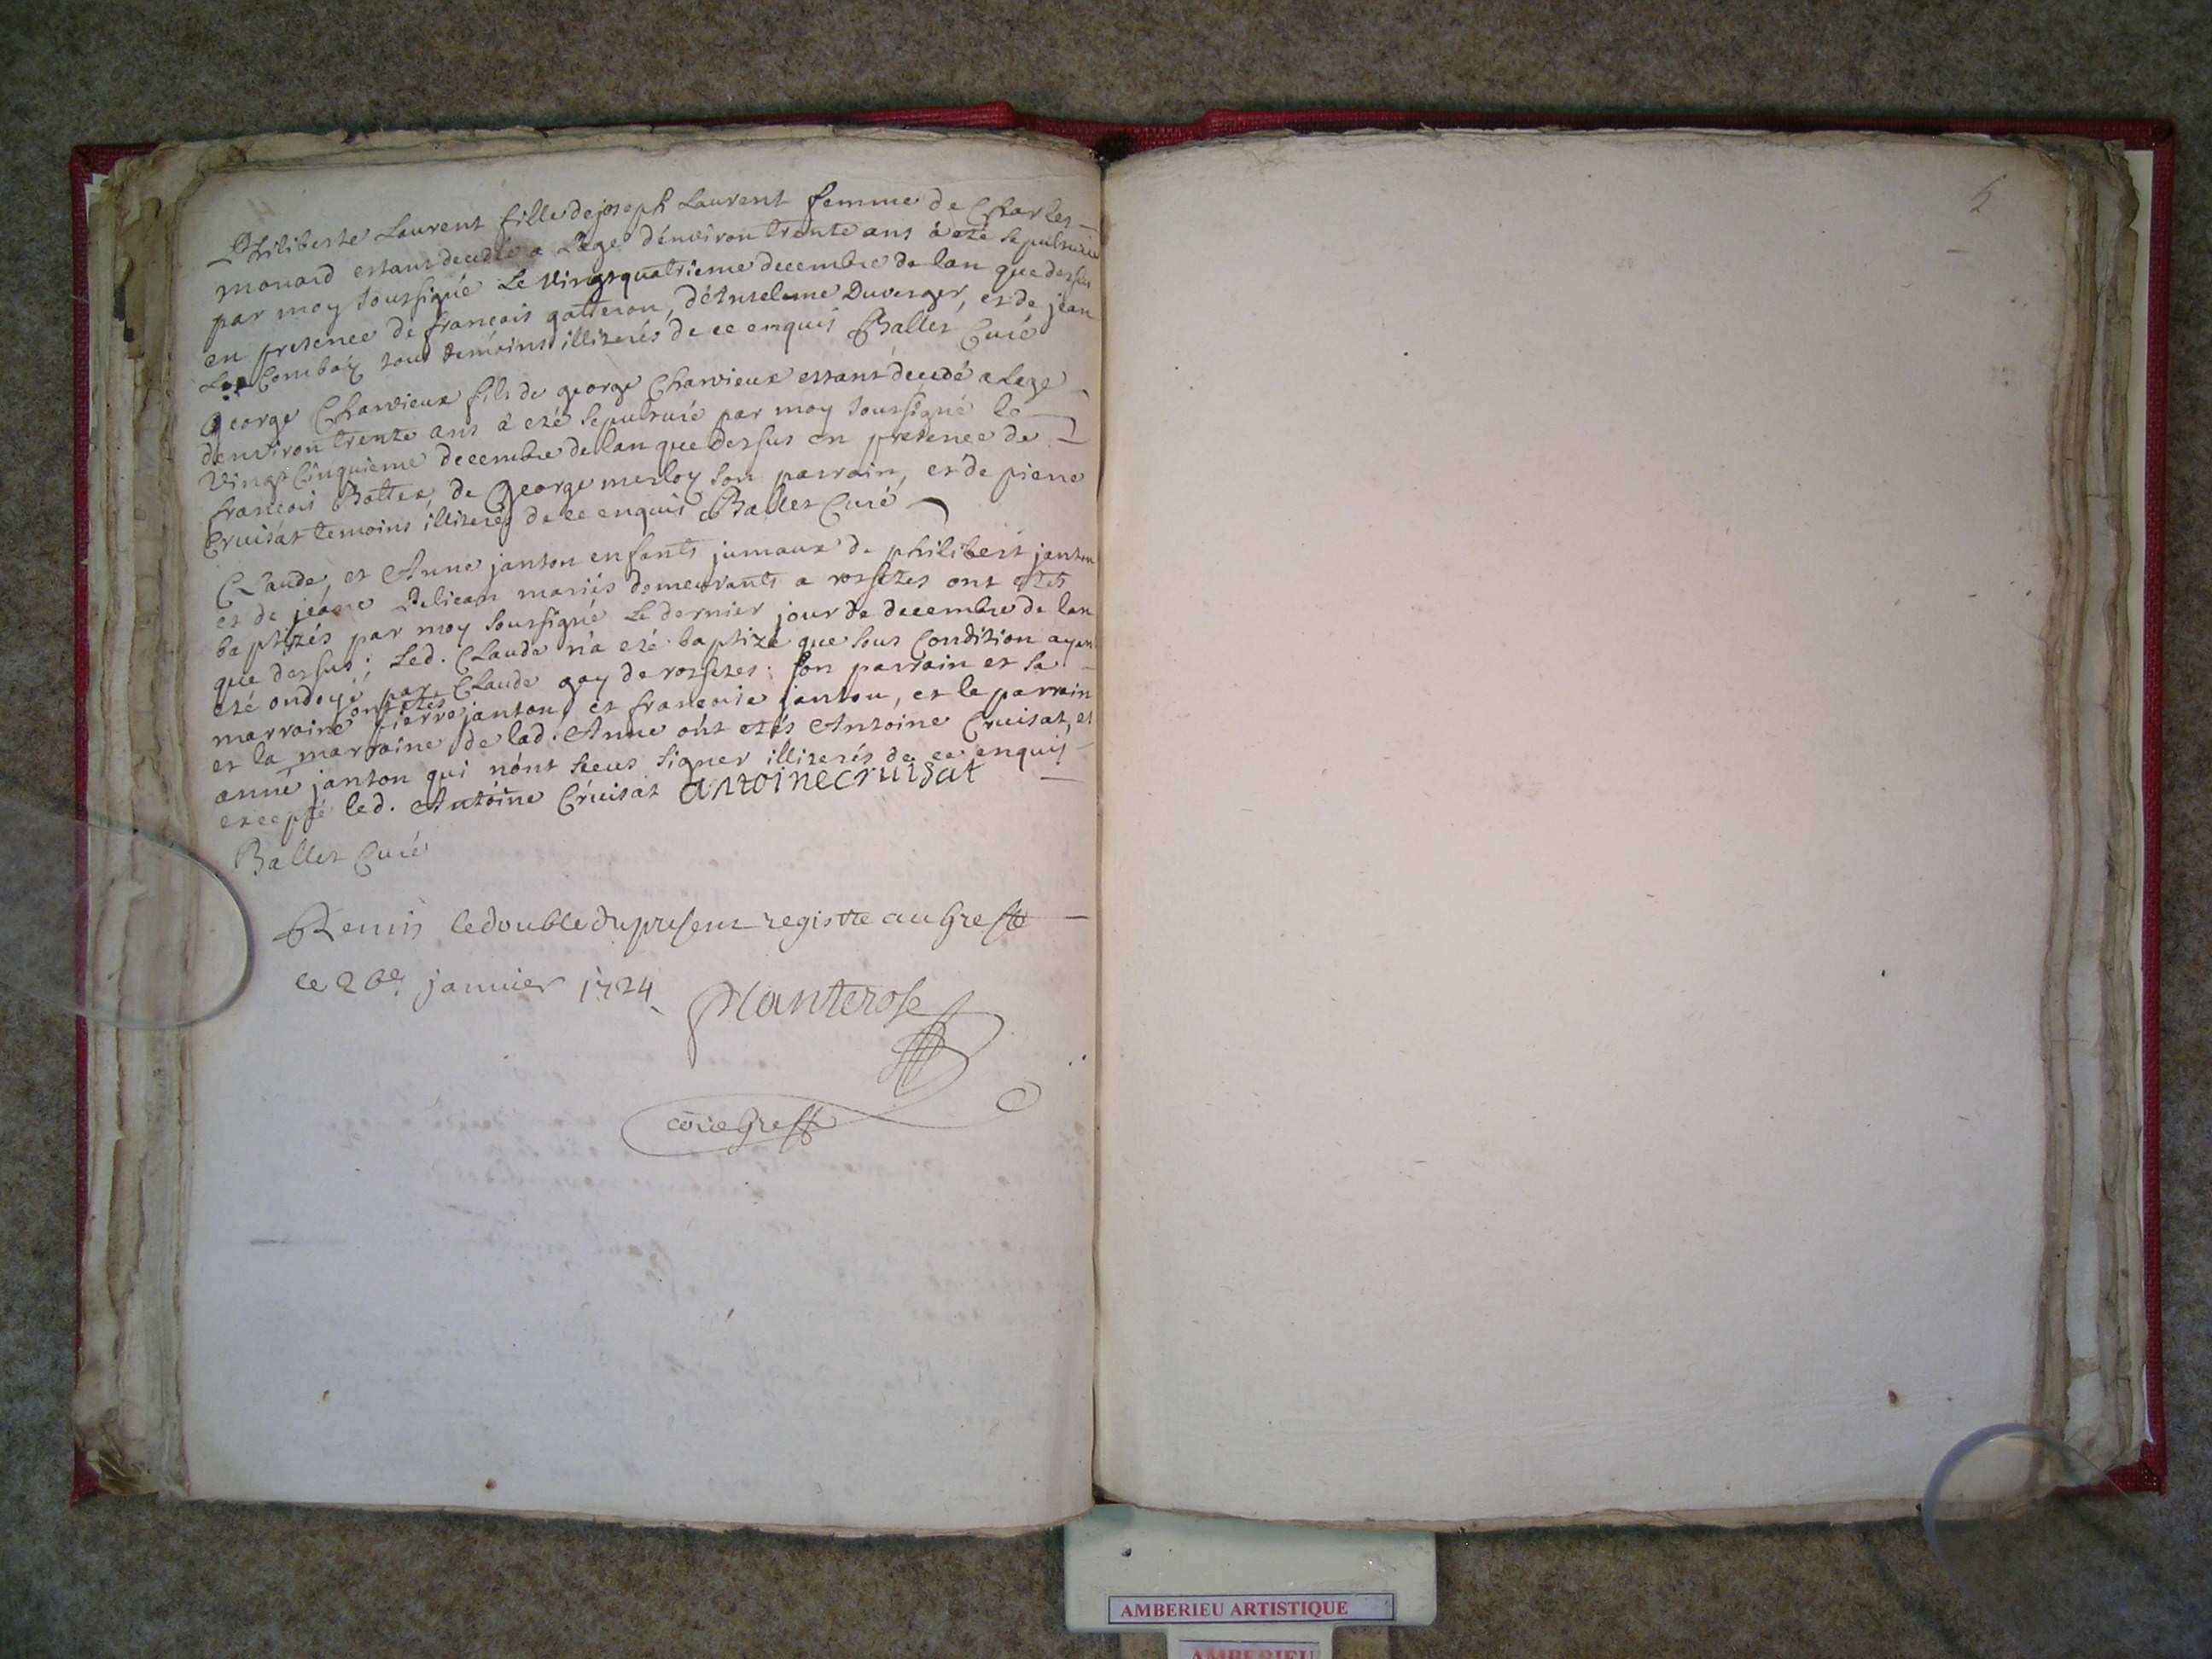 Philiberte Laurent fille de joseph Laurent femme de Charles
monard estant decedée a L'age d'environ trente ans á eté sepulturée
par moy soussigné Le vingtquatrieme decembre de lan que dessus
en presence de francois gatteron, d'Anselme Duverger, et de jean
Combaz tous temoins illiterés de ce enquis Ballet Curé
george Charvieux fils de george Charvieux estant decedé a Lage
denviron trente ans á eté sepulturé par moy soussigné le
vingt Cinquieme decembre de lan que dessus en presence de
francois Battes, de George merloy son parrain, et de pierre
Cruisat temoins illiterés de ce enquis Ballet Curé
Claude, et Anne janton enfants jumaux de philibert janton
et de jeane Pelican mariés demeurants a rossetes ont etés
baptizés par moy soussigné Le dernier jour de decembre de lan
que dessus; Led. Claude n'a eté baptizé que sous Condition ayant
eté ondoyé par Claude gay de rossetes: son parrain et sa
marraine ont etés pierre janton, et francoise janton, et le parrain
et la marraine de lad. Anne ont etés Antoine Cruisat, et
anne janton qui n'ont sceus signer illiterés de ce enquis
excepté led. Antoine Cruisat antoinecruisat
Ballet Curé
Remis le double du present registre au Greffe
le 26e janvier 1724 Planterose
co͞ie Greff
5
AMBERIEU ARTISTIQUE
AMBERIEU